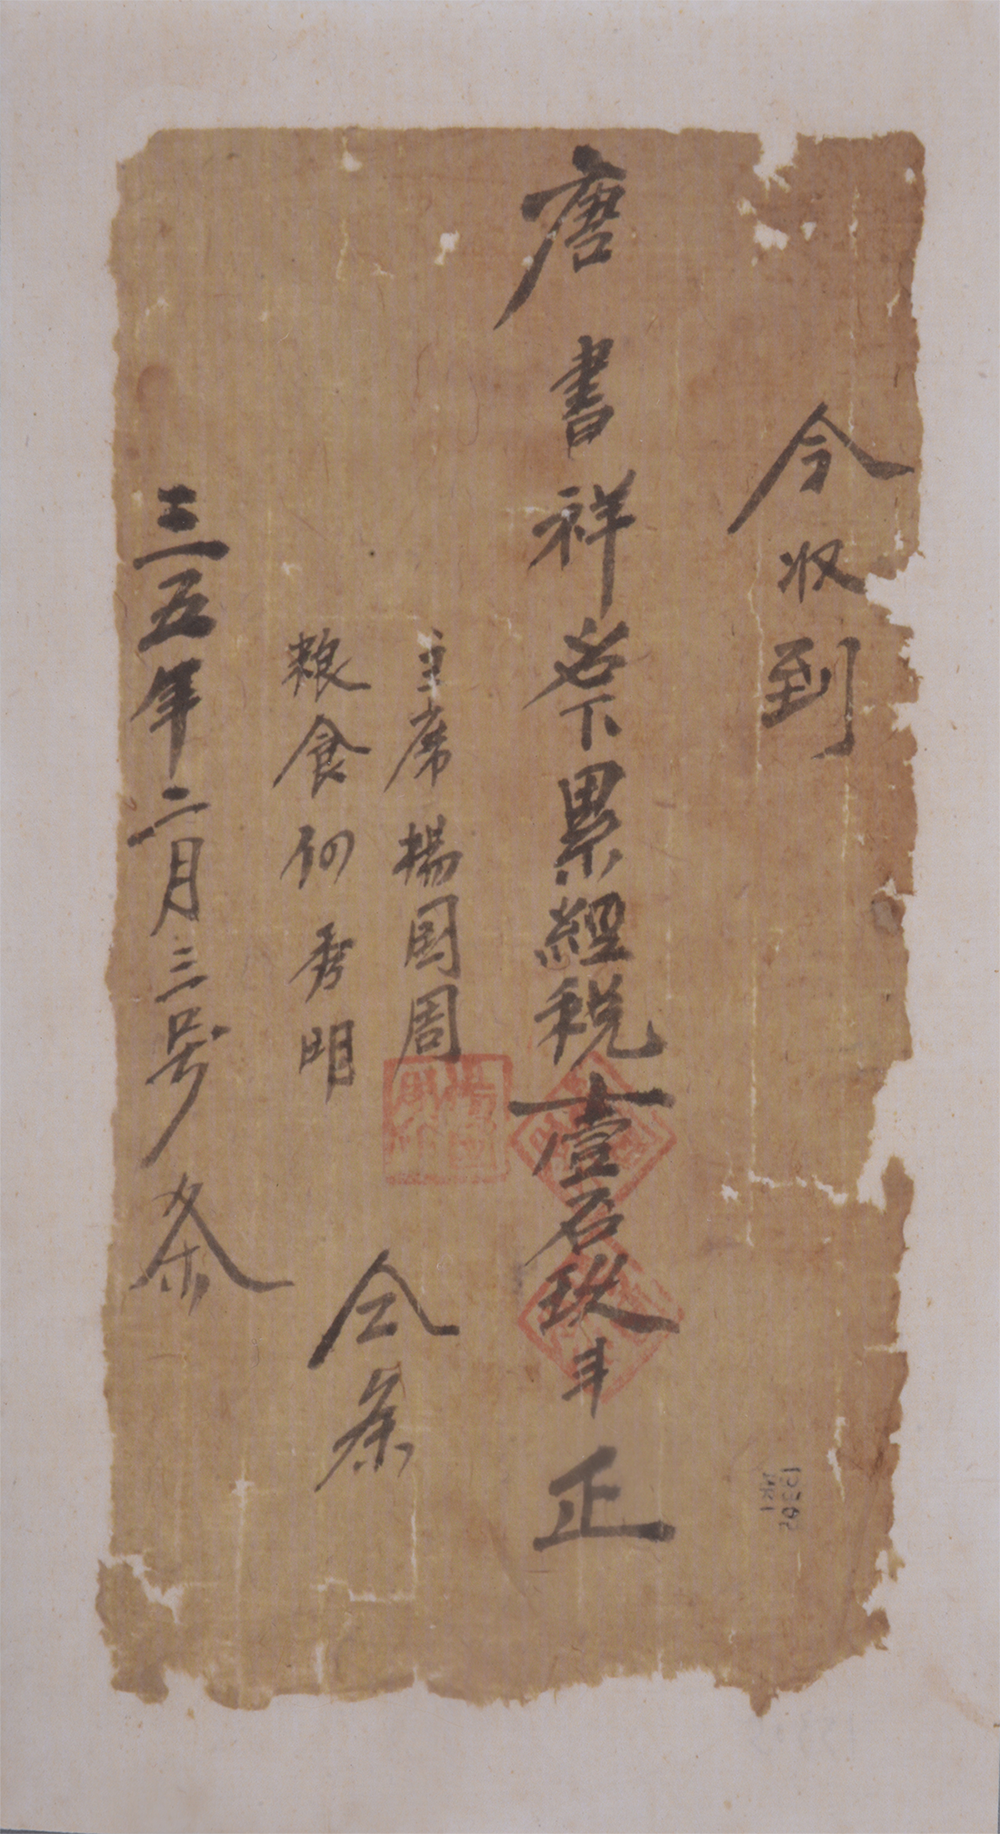 今收到
唐書祥名下累經税壹石玖斗正
主席楊国周
粮食何秀明
仝条
三五年二月三号条